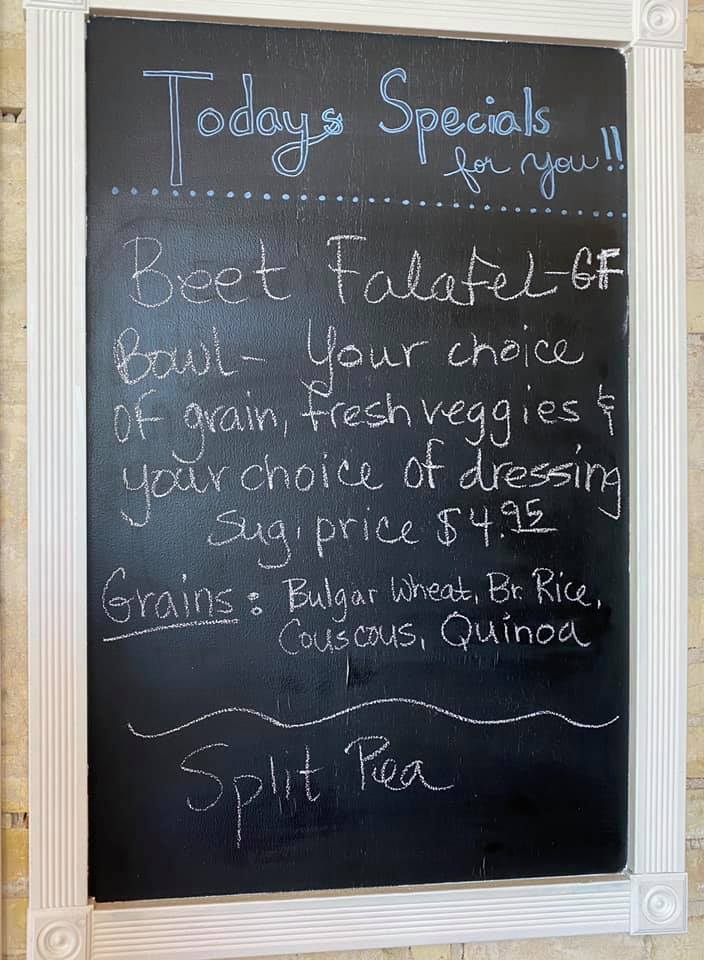 Todays Specials
for you!!
Beet Falafel-GF
Bowl- Your choice
of grain, fresh veggies &
your choice of dressing
Sug. price $4.95
Grains: Bulgar Wheat, Br. Rice,
Couscous, Quinoa
Split Pea